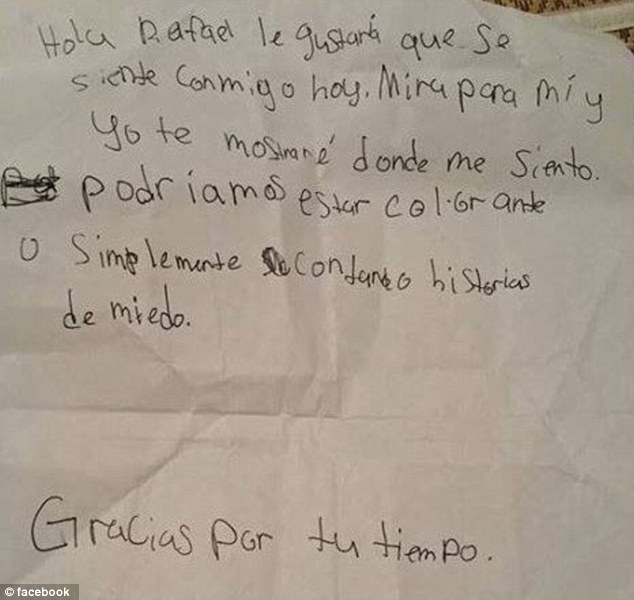 Hola Rafael le gustará que se
siente conmigo hoy. Mira para mí y
yo te mostraré donde me siento.
podriamos estar col.Grante
o simplemente contando historias
de miedo.
Gracias por tu tiempo.
© facebook